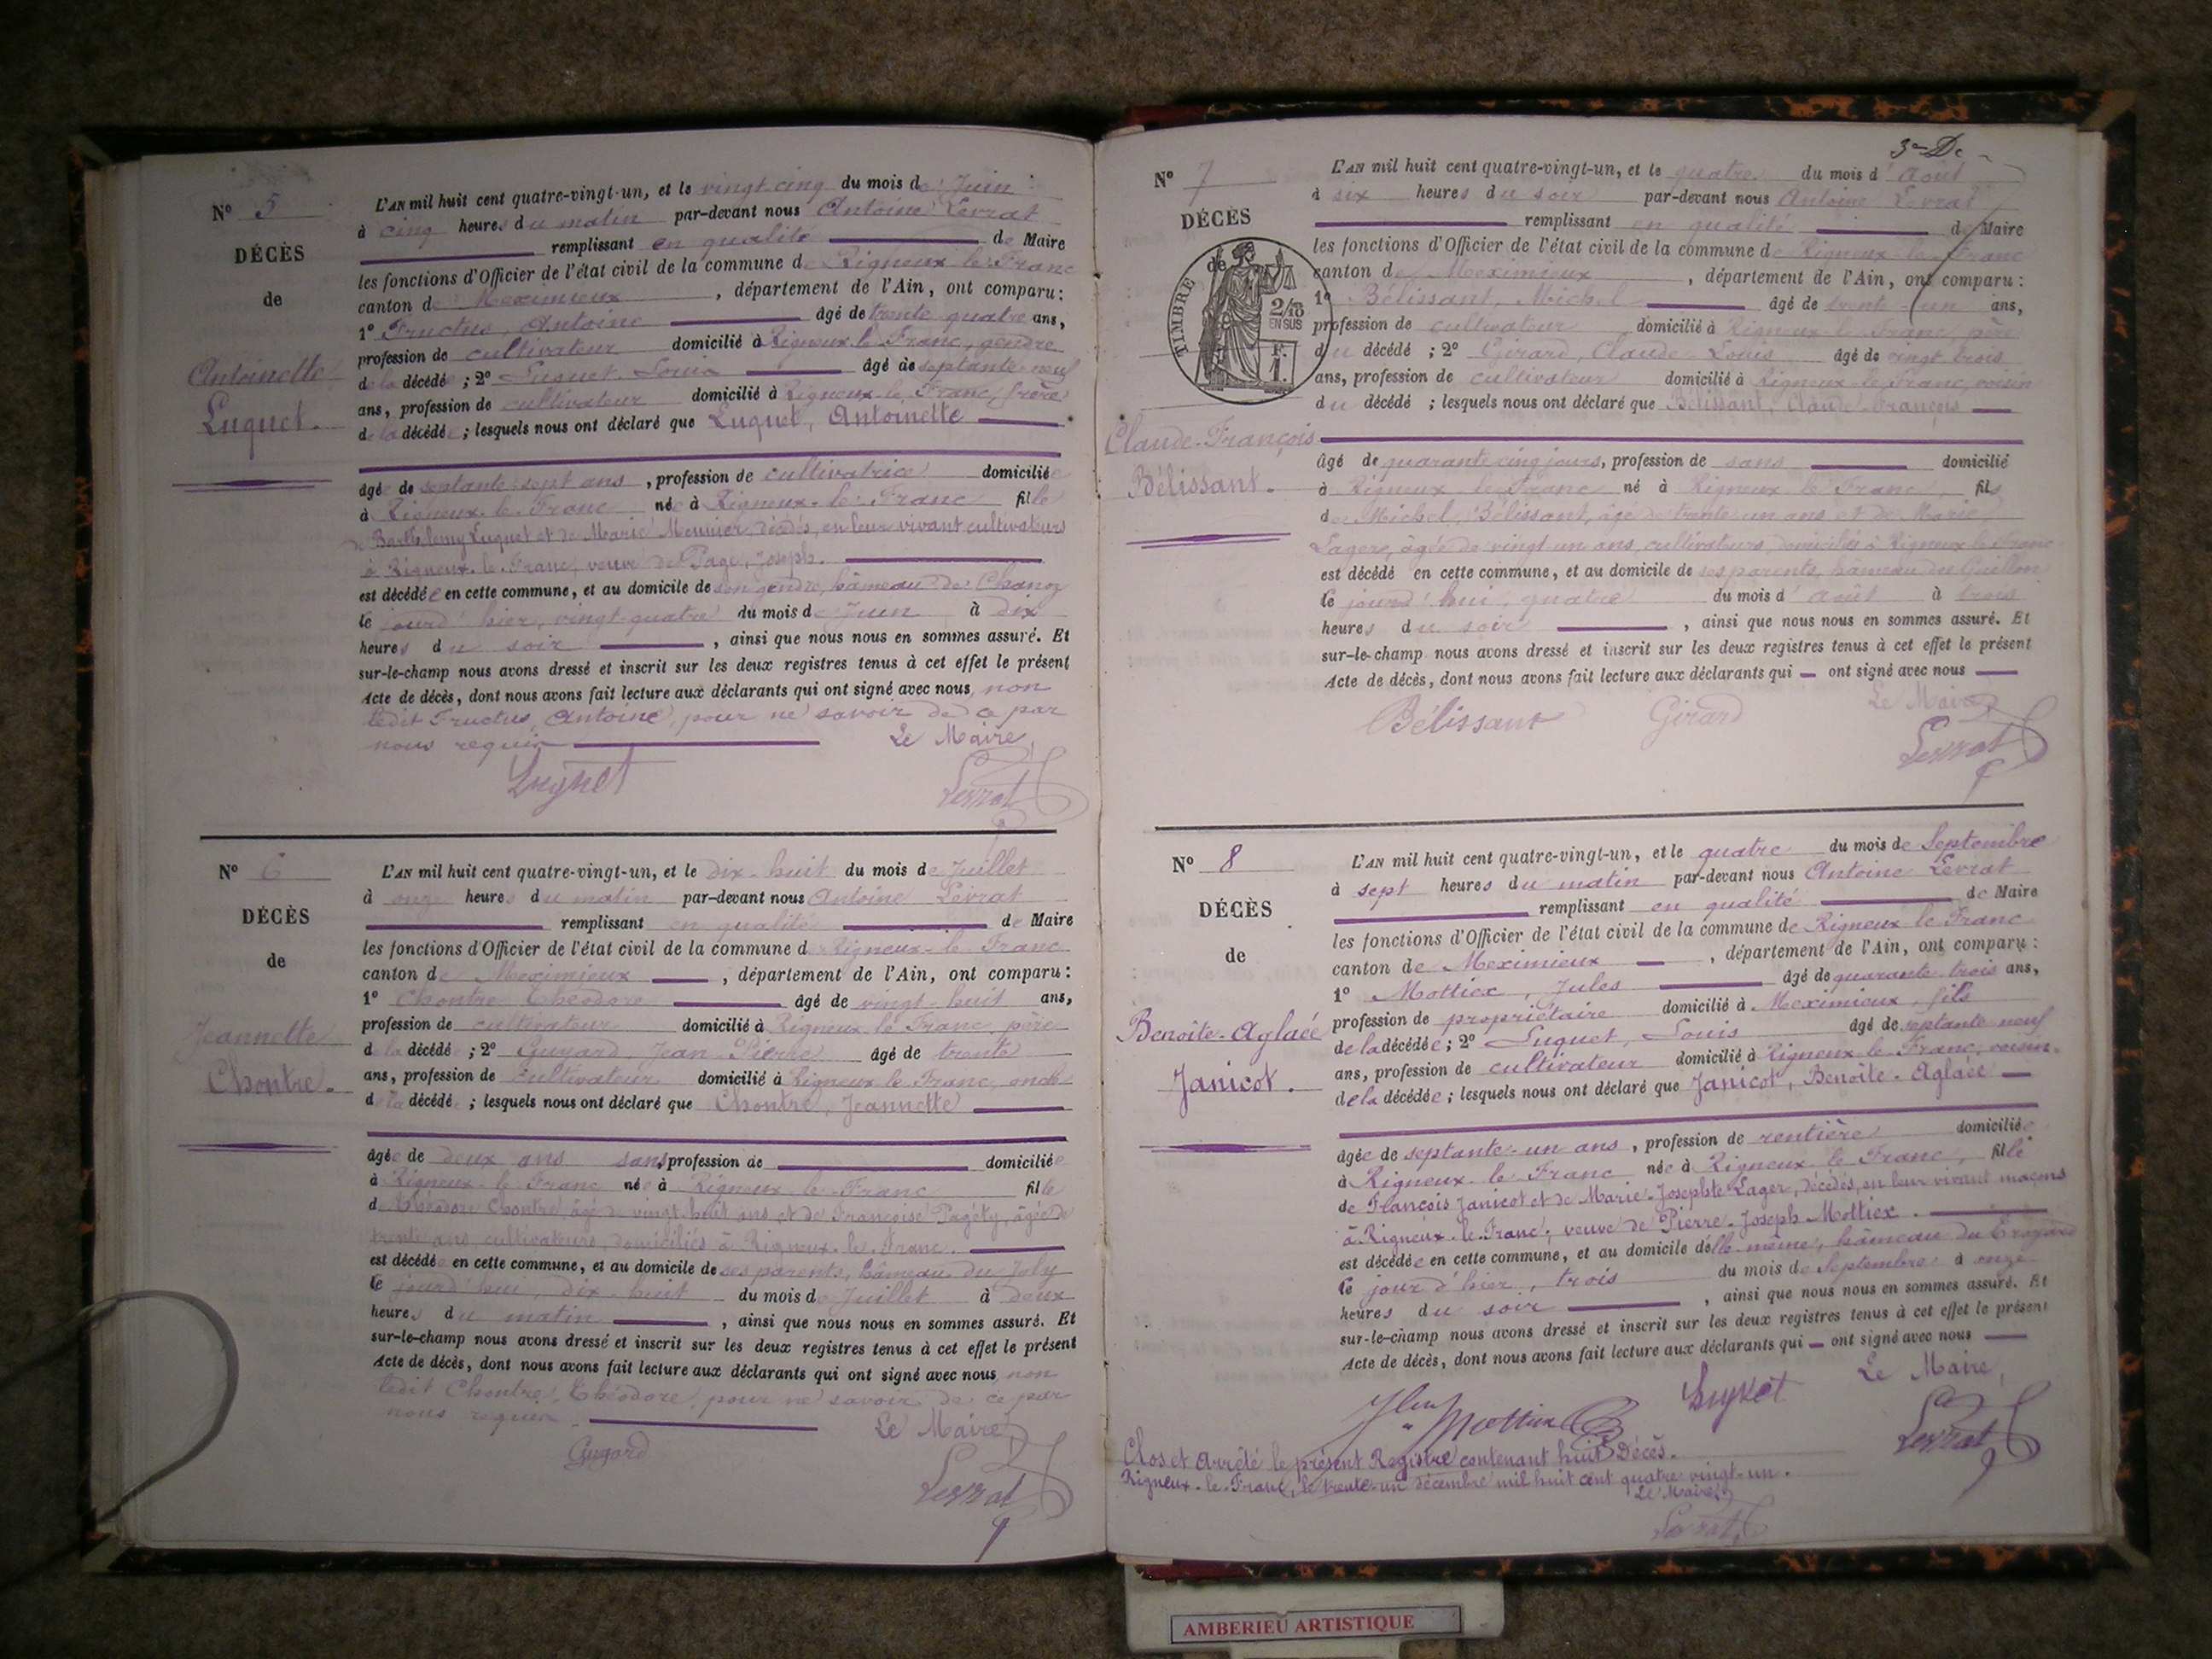 N° 5
DÉCÈS
de
Antoinette
Luquet.
L'AN mil huit cent quatre-vingt-un, et le vingt cinq du mois de Juin
à cinq heures du matin par-devant nous Antoine Levrat
remplissant en qualité de Maire
les fonctions d'Officier de l'état civil de la commune de Rigneux-le-Franc
canton de Meximieux, département de l'Ain, ont comparu:
1° Fructus, Antoine âgé de trente quatre ans,
profession de cultivateur domicilié à Rigneux le Franc, gendre
de la décédée; 2° Luquet, Louis âgé de septante-neuf
ans, profession de cultivateur domicilié à Rigneux-le-Franc, frère
de la décédée; lesquels nous ont déclaré que Luquet, Antoinette
âgée de septante-sept ans, profession de cultivatrice domiciliée
à Rigneux-le-Franc née à Rigneux-le-Franc fille
de Barthélemy Luquet et de Marie Meunier, décédés, en leur vivant cultivateurs
à Rigneux-le-Franc, veuve de Page, Joseph.
est décédée en cette commune, et au domicile de son gendre, hâmeau de Chanoz
le jourd'hier, vingt-quatre du mois de Juin à dix
heures du soir, ainsi que nous nous en sommes assuré. Et
sur-le-champ nous avons dressé et inscrit sur les deux registres tenus à cet effet le présent
Acte de décès, dont nous avons fait lecture aux déclarants qui ont signé avec nous, non
ledit Fructus, Antoine, pour ne savoir de ce par
nous requis
Le Maire,
Luquet
Levrat
N° 6
DÉCÈS
de
Jeannette
Chontre.
L'AN mil huit cent quatre-vingt-un, et le dix-huit du mois de Juillet
à onze heures du matin par-devant nous Antoine Levrat
remplissant en qualité de Maire
les fonctions d'Officier de l'état civil de la commune de Rigneux-le-Franc
canton de Meximieux, département de l'Ain, ont comparu:
1° Chontre, Théodore âgé de vingt-huit ans,
profession de cultivateur domicilié à Rigneux le Franc, père
de la décédée; 2° Guyard, Jean-Pierre âgé de trente
ans, profession de cultivateur domicilié à Rigneux le Franc, oncle
de la décédée; lesquels nous ont déclaré que Chontre, Jeannette
âgée de deux ans sans profession de domiciliée
à Rigneux-le-Franc née à Rigneux-le-Franc fille
de Théodore Chontre, âgé de vingt-huit ans et de Françoise Pagéty, âgée de
trente ans, cultivateurs, domiciliés à Rigneux-le-Franc.
est décédée en cette commune, et au domicile de ses parents, hâmeau du Joly
le jourd'hui, dix-huit du mois de Juillet à deux
heures du matin, ainsi que nous nous en sommes assuré. Et
sur-le-champ nous avons dressé et inscrit sur les deux registres tenus à cet effet le présent
Acte de décès, dont nous avons fait lecture aux déclarants qui ont signé avec nous, non
ledit Chontre, Théodore, pour ne savoir de ce par
nous requis.
Le Maire,
Guyard
Levrat
3e De
N° 7
DÉCÈS
de
TIMBRE
2/10
EN SUS
F.
1.
Claude-François
Bélissant.
L'AN mil huit cent quatre-vingt-un, et le quatre du mois d'Août
à six heures du soir par-devant nous Antoine Levrat
remplissant en qualité de Maire
les fonctions d'Officier de l'état civil de la commune de Rigneux-le-Franc
canton de Meximieux, département de l'Ain, ont comparu:
1° Bélissant, Michel âgé de trente-un ans,
profession de cultivateur domicilié à Rigneux-le-Franc, père
du décédé; 2° Girard, Claude-Louis âgé de vingt trois
ans, profession de cultivateur domicilié à Rigneux-le-Franc, voisin
du décédé; lesquels nous ont déclaré que Bélissant, Claude-François
âgé de quarante cinq jours, profession de sans domicilié
à Rigneux le Franc né à Rigneux le Franc, fils
de Michel, Bélissant, âgé de trente-un ans et de Marie
Lager, âgée de vingt un ans, cultivateurs, domiciliés à Rigneux le Franc
est décédé en cette commune, et au domicile de ses parents, hâmeau du Guillon
le jourd'hui, quatre du mois d'août à trois
heures du soir, ainsi que nous nous en sommes assuré. Et
sur-le-champ nous avons dressé et inscrit sur les deux registres tenus à cet effet le présent
Acte de décès, dont nous avons fait lecture aux déclarants qui ont signé avec nous
Le Maire,
Bélissant Girard
Levrat
N° 8
DÉCÈS
de
Benoîte-Aglaée
Janicot.
L'AN mil huit cent quatre-vingt-un, et le quatre du mois de Septembre
à sept heures du matin par-devant nous Antoine Levrat
remplissant en qualité de Maire
les fonctions d'Officier de l'état civil de la commune de Rigneux-le-Franc
canton de Meximieux, département de l'Ain, ont comparu:
1° Mottiex, Jules âgé de quarante-trois ans,
profession de propriétaire domicilié à Meximieux, fils
de la décédée; 2° Luquet, Louis âgé de septante neuf
ans, profession de cultivateur domicilié à Rigneux-le-Franc, voisin.
de la décédée; lesquels nous ont déclaré que Janicot, Benoîte-Aglaée
âgée de septante-un ans, profession de rentière domiciliée
à Rigneux-le-Franc née à Rigneux-le-Franc, fille
de François Janicot et de Marie-Josephte Lager, décédés, en leur vivant maçons
à Rigneux-le-Franc, veuve de Pierre-Joseph Mottiex.
est décédée en cette commune, et au domicile d'elle-même, hâmeau du
le jour d'hier, trois du mois de Septembre à onze
heures du soir, ainsi que nous nous en sommes assuré. Et
sur-le-champ nous avons dressé et inscrit sur les deux registres tenus à cet effet le présent
Acte de décès, dont nous avons fait lecture aux déclarants qui ont signé avec nous
Le Maire,
Mottiex Luquet
Levrat
Clos et Arrêté le présent Registre contenant huit Décès.
Rigneux-le-Franc, le trente-un décembre mil huit cent quatre vingt-un.
Le Maire,
Levrat
AMBERIEU ARTISTIQUE